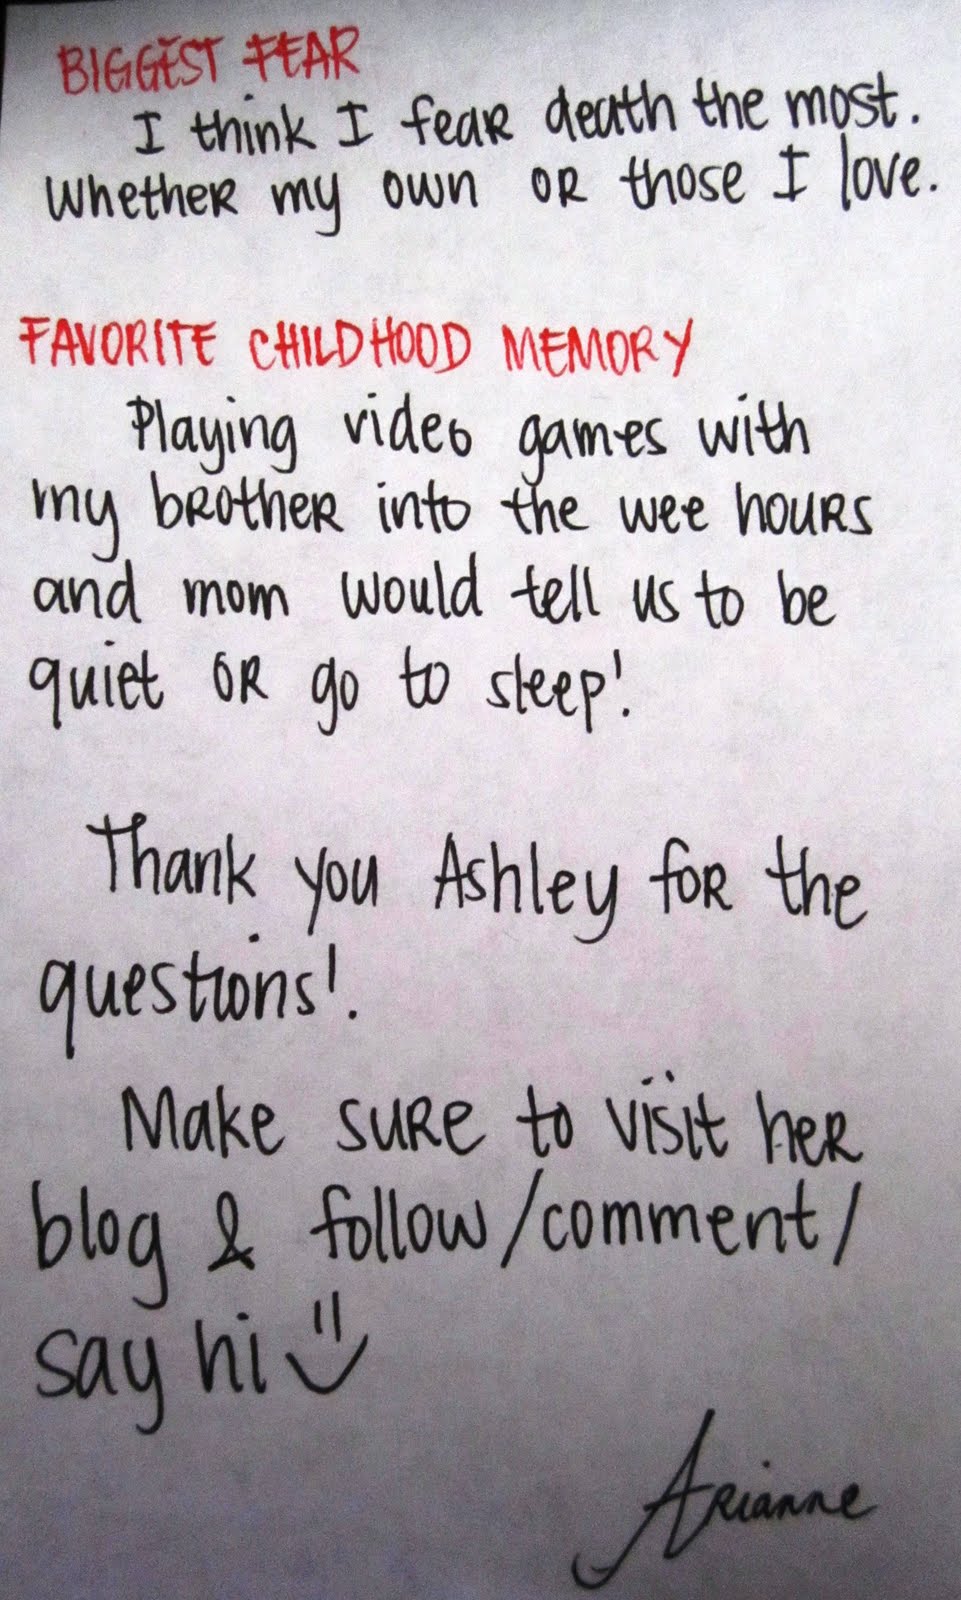 BIGGEST FEAR
I think I fear death the most.
Whether my own or those I love.
FAVORITE CHILDHOOD MEMORY
Playing video games with
my brother into the wee hours
and mom would tell us to be
quiet or go to sleep!
Thank you Ashley for the
questions!
Make sure to visit her
blog & follow/comment/
say hi =)
Arianne